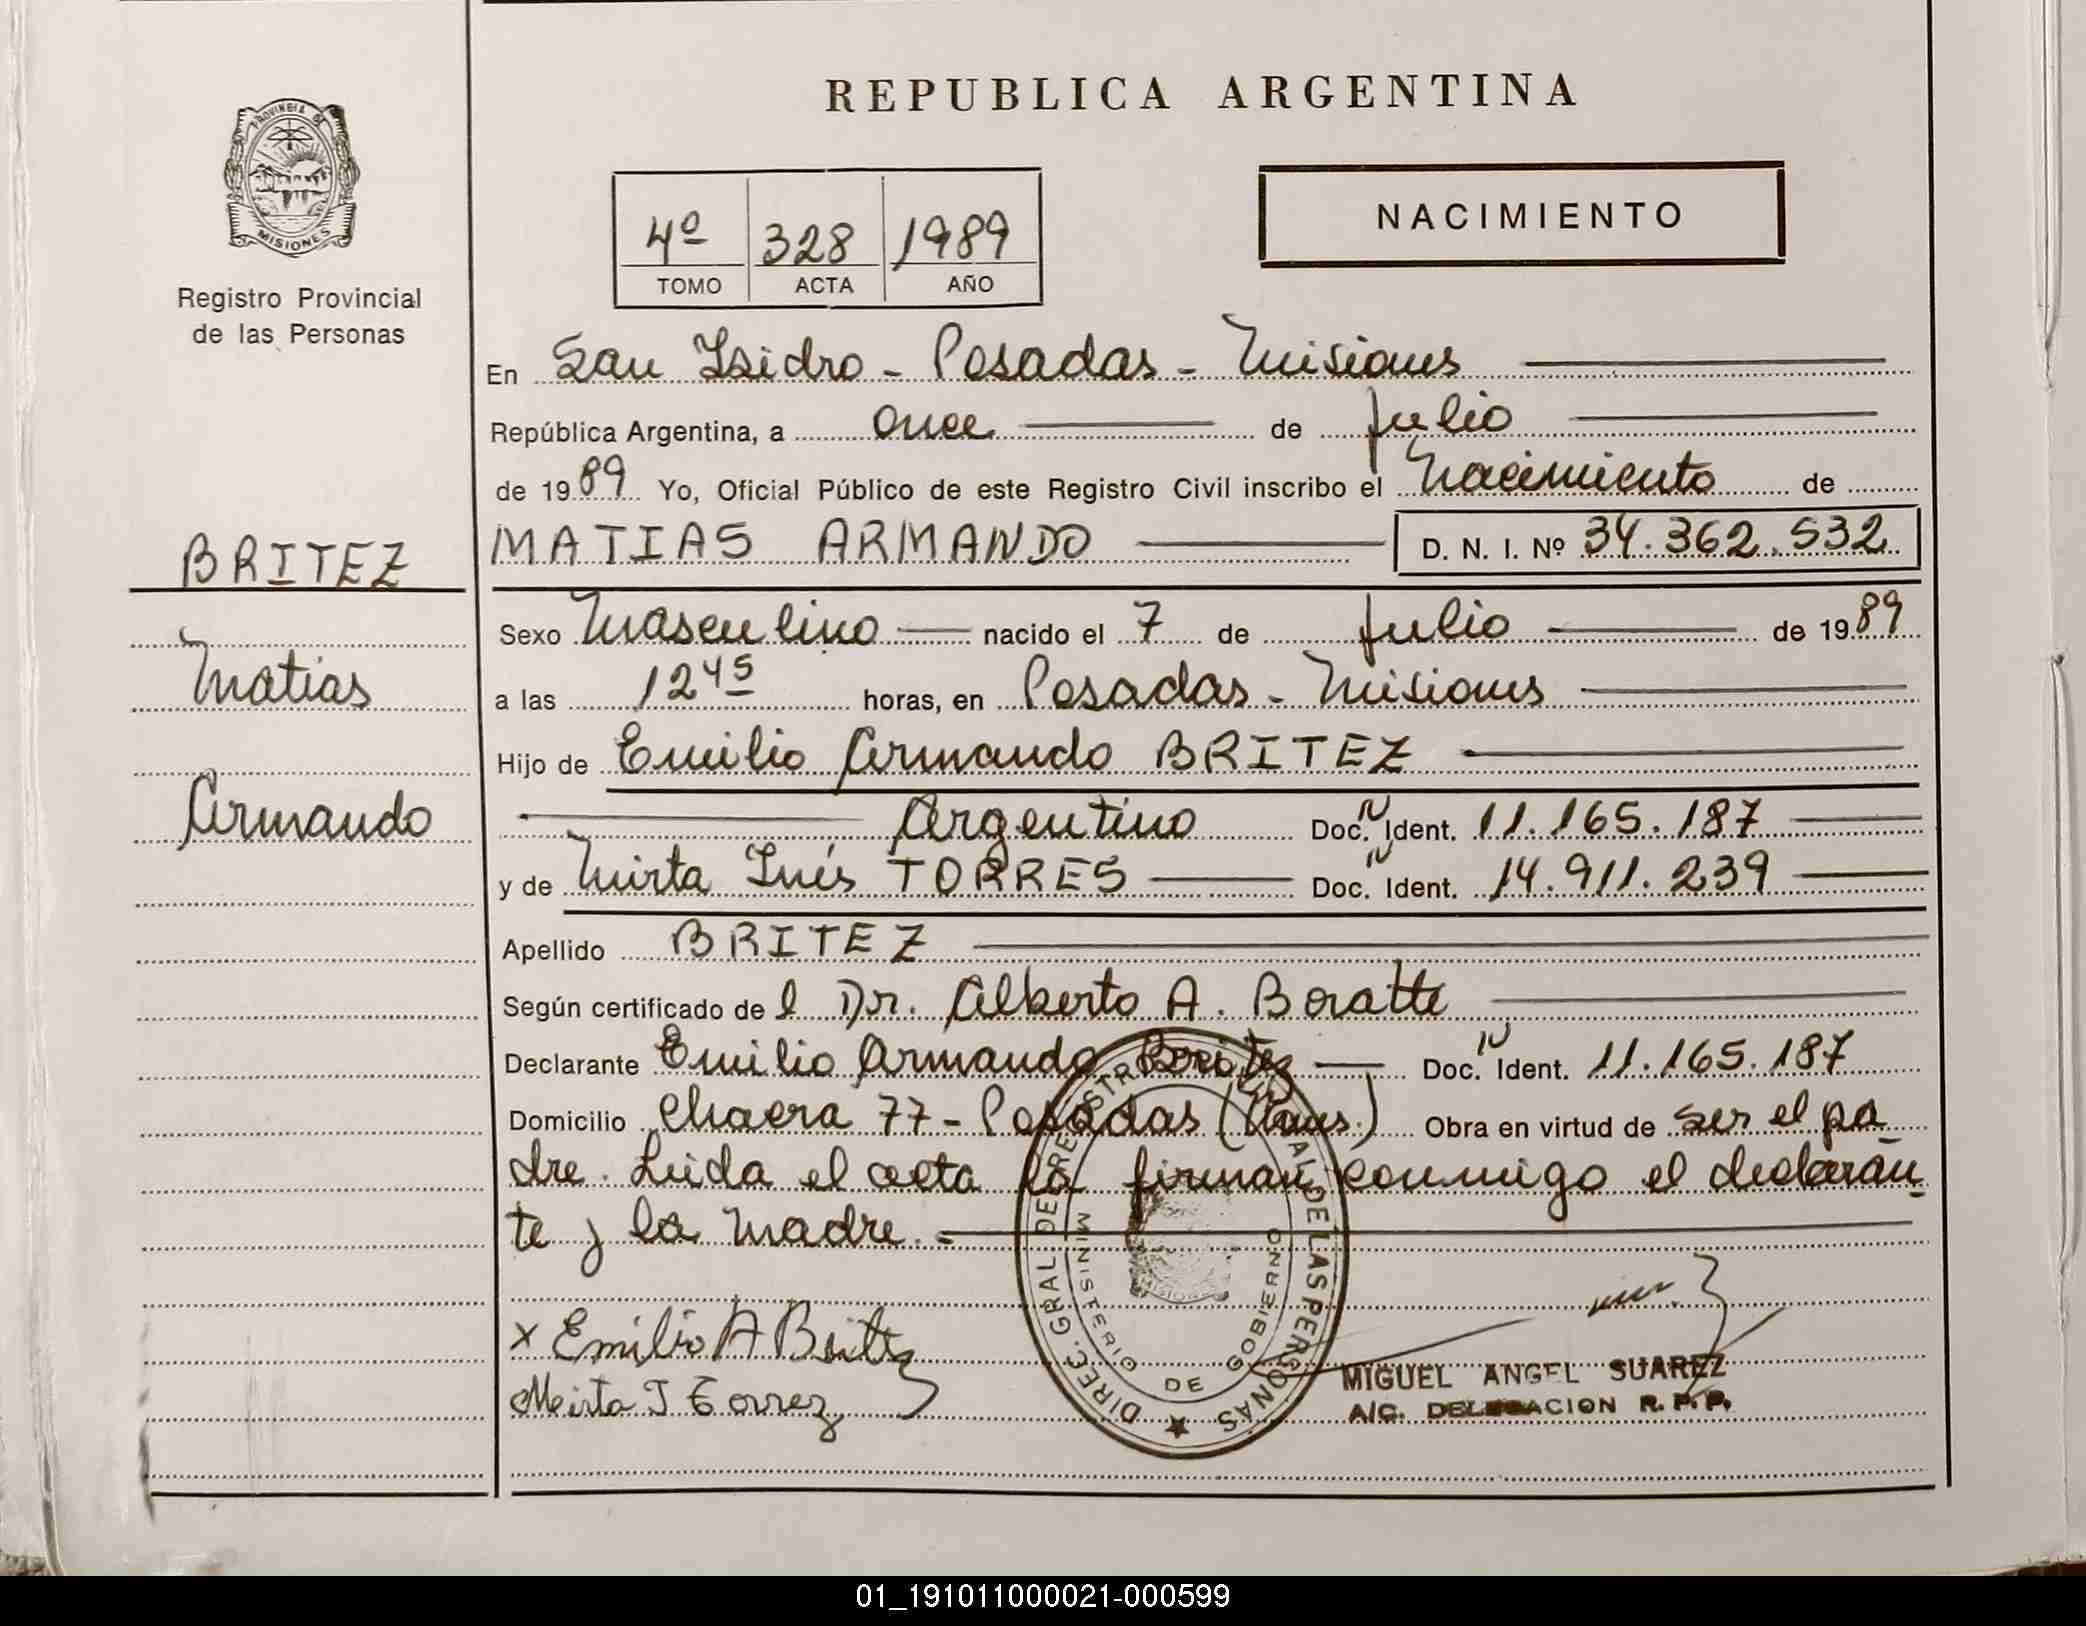 REPUBLICA ARGENTINA
PROVINCIA DE
MISIONES
Registro Provincial
de las Personas
4º 328 1989
TOMO ACTA AÑO
NACIMIENTO
En San Isidro - Posadas - Misiones
República Argentina, a once de Julio
de 1989 Yo, Oficial Público de este Registro Civil inscribo el Nacimiento de
MATIAS ARMANDO D. N. I. Nº 34.362.532
BRITEZ
Matias
Armando
Sexo Masculino nacido el 7 de Julio de 1989
a las 12 45 horas, en Posadas - Misiones
Hijo de Emilio Armando BRITEZ
Argentino Doc. N Ident. 11.165.187
y de Mirta Inés TORRES Doc. N Ident. 14.911.239
Apellido BRITEZ
Según certificado de l Dr. Alberto A. Boratte
Declarante Emilio Armando Britez Doc. N Ident. 11.165.187
Domicilio Chacra 77 - Posadas (Mnes.) Obra en virtud de ser el pa_
dre. Leida el acta la firman conmigo el declaran_
te y la madre. =
x Emilio A Britez
Mirta I Torrez
DIREC. GRAL DE REGISTRO PROVINCIAL DE LAS PERSONAS
MINISTERIO DE GOBIERNO
MIGUEL ANGEL SUAREZ
A/C. DELEGACION R.P.P.
01_191011000021-000599